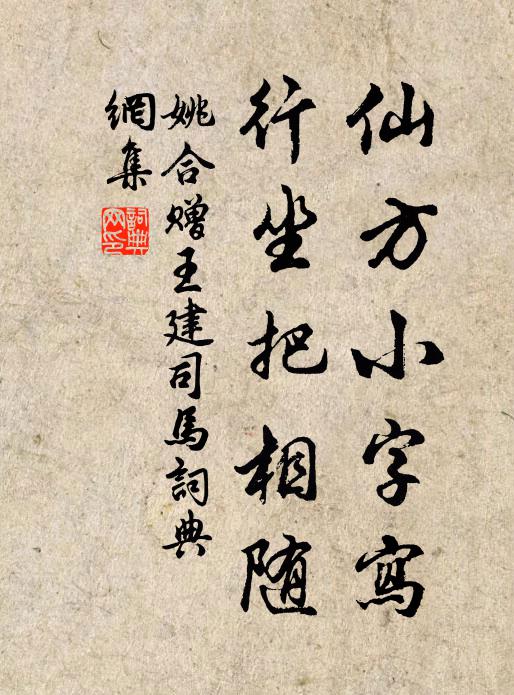 仙方小字寫
行坐把相随
姚合赠王建司馬詞典
網集
詞典网印